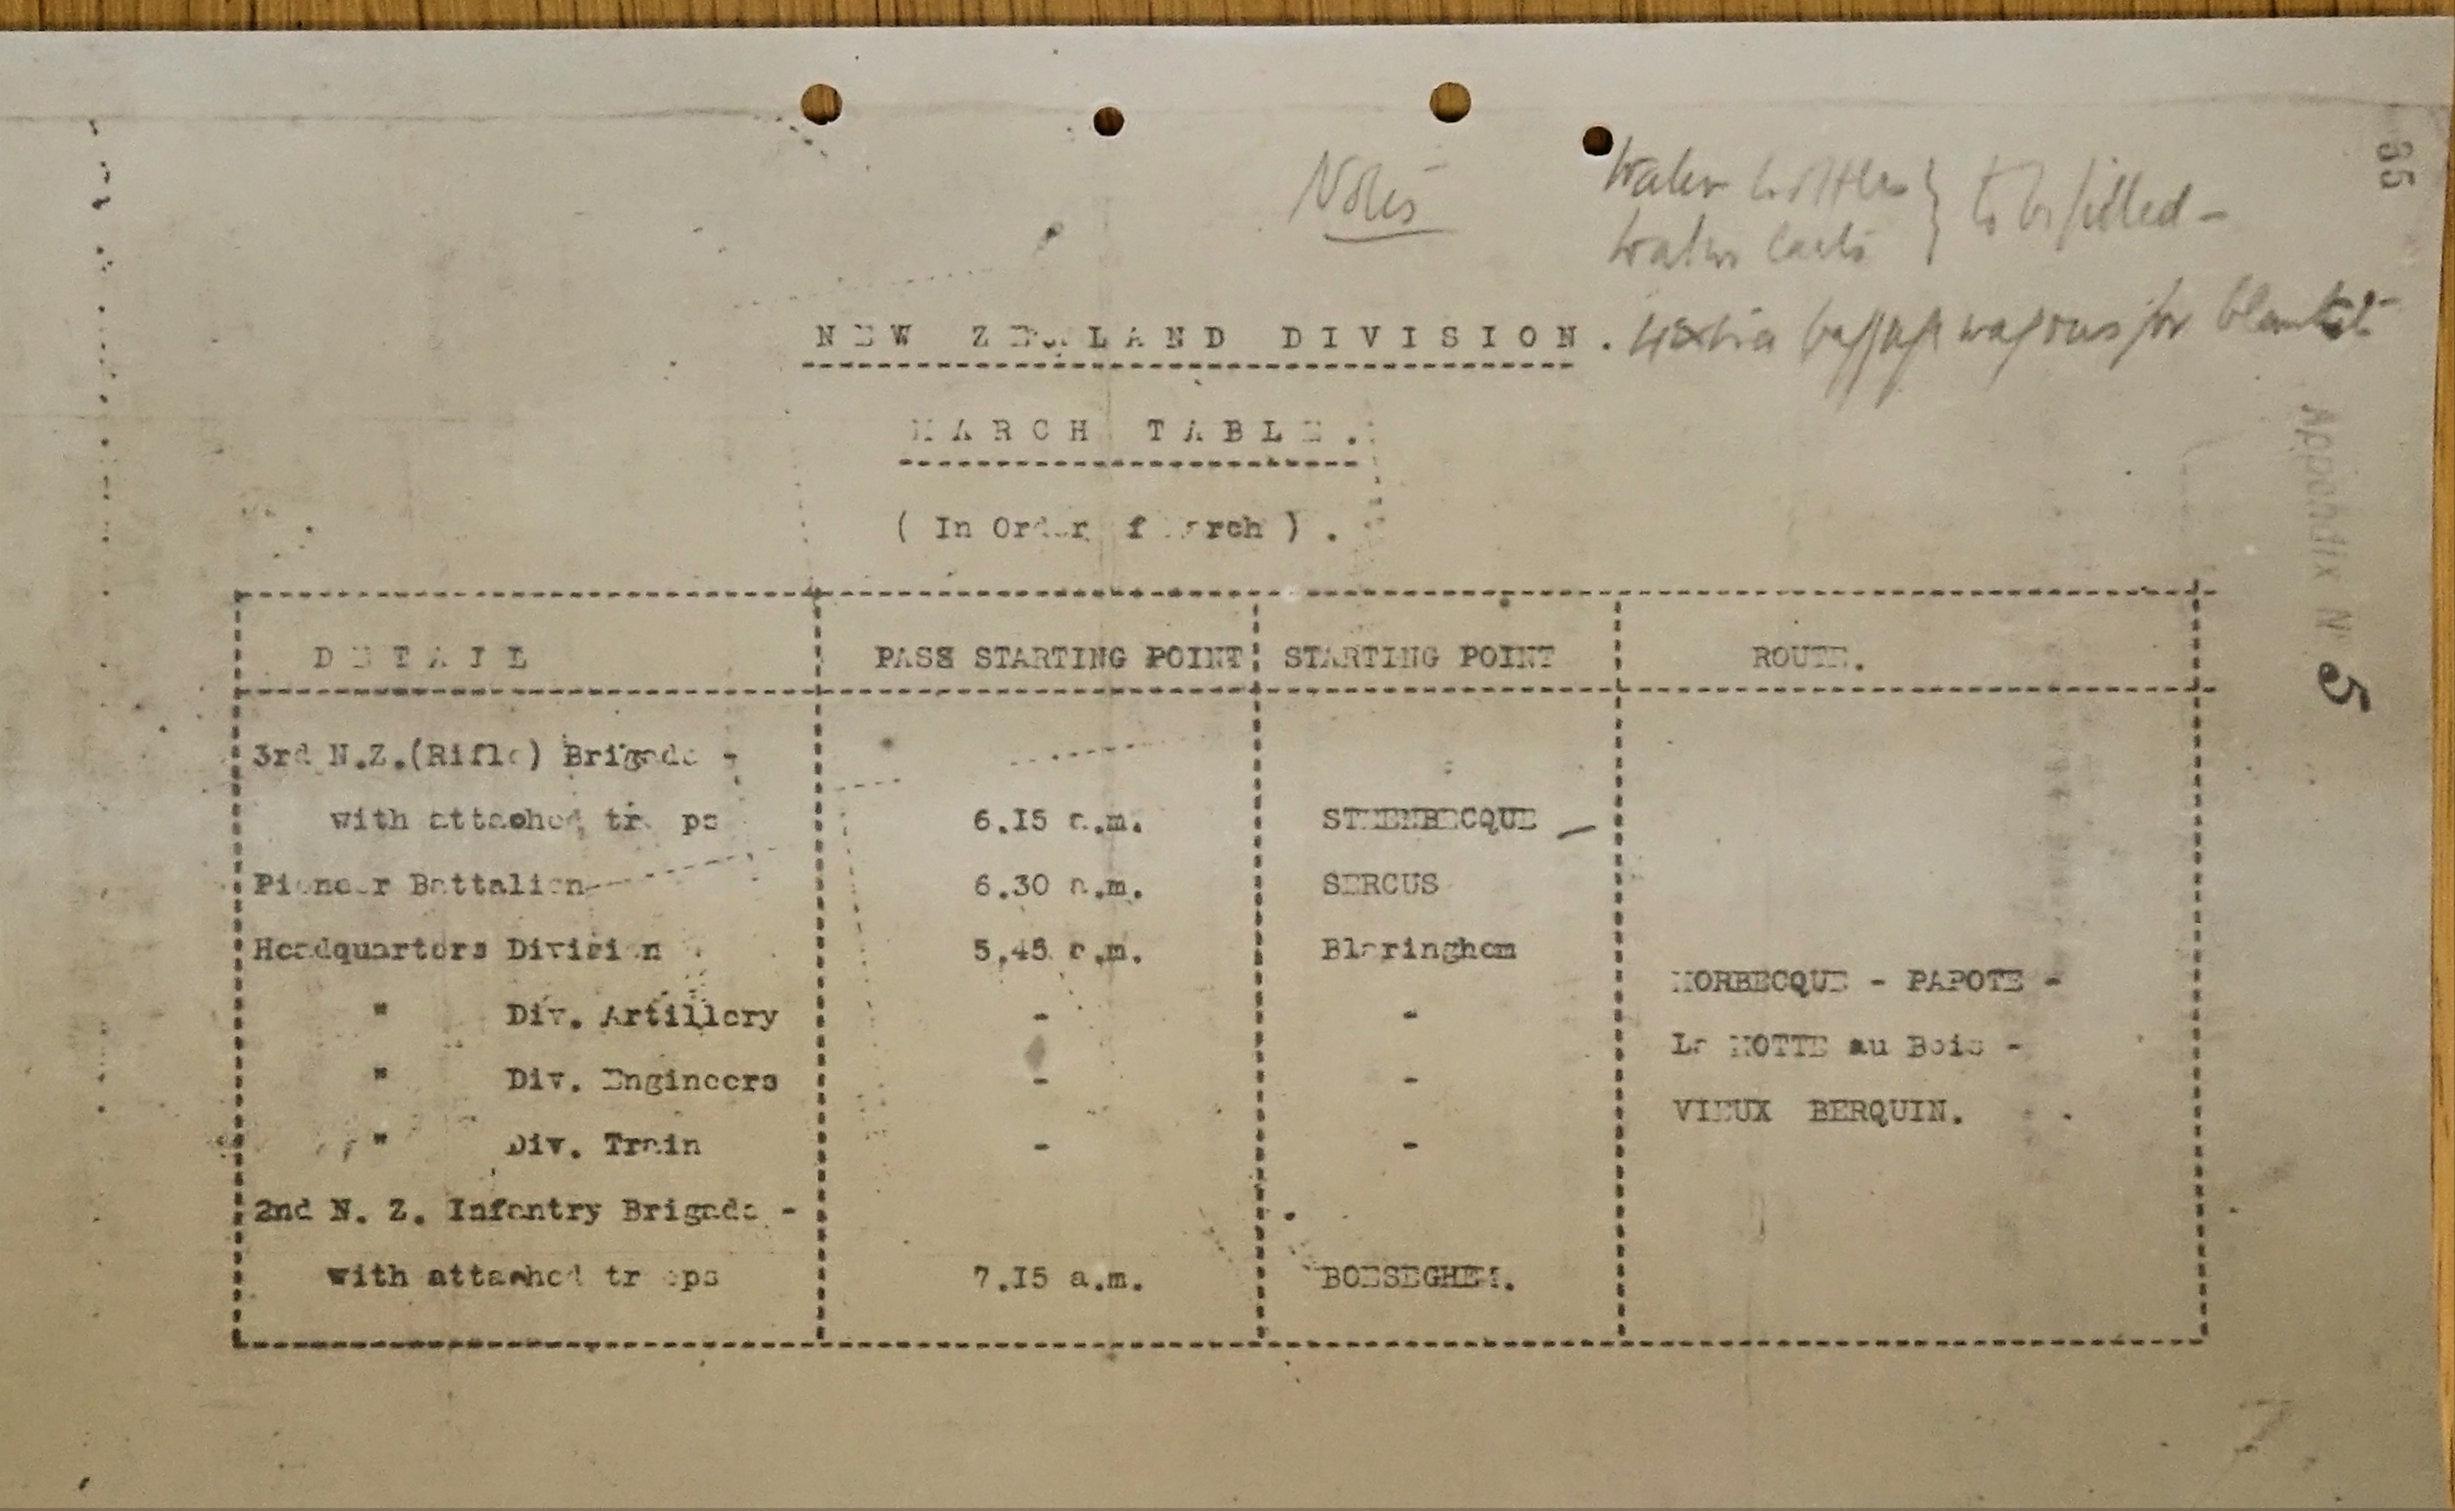 35
Notes
Water bottles } to be filled -
Water Carts
4 extra baggage wagons for blankets
NEW ZEALAND DIVISION.
MARCH TABLE.
( In Order of March ) .
Appendix No 5
DETAIL PASS STARTING POINT STARTING POINT ROUTE.
3rd N.Z.(Rifle) Brigade -
with attached troops 6.15 a.m. STEENBECQUE
Pioneer Battalion 6.30 a.m. SERCUS
Headquarters Division 5.45 a.m. Blaringhem
MORBECQUE - PAPOTE -
" Div. Artillery - -
La MOTTE au Bois -
" Div. Engineers - -
VIEUX BERQUIN.
" Div. Train - -
2nd N. Z. Infantry Brigade -
with attached troops 7.15 a.m. BOESEGHEM.